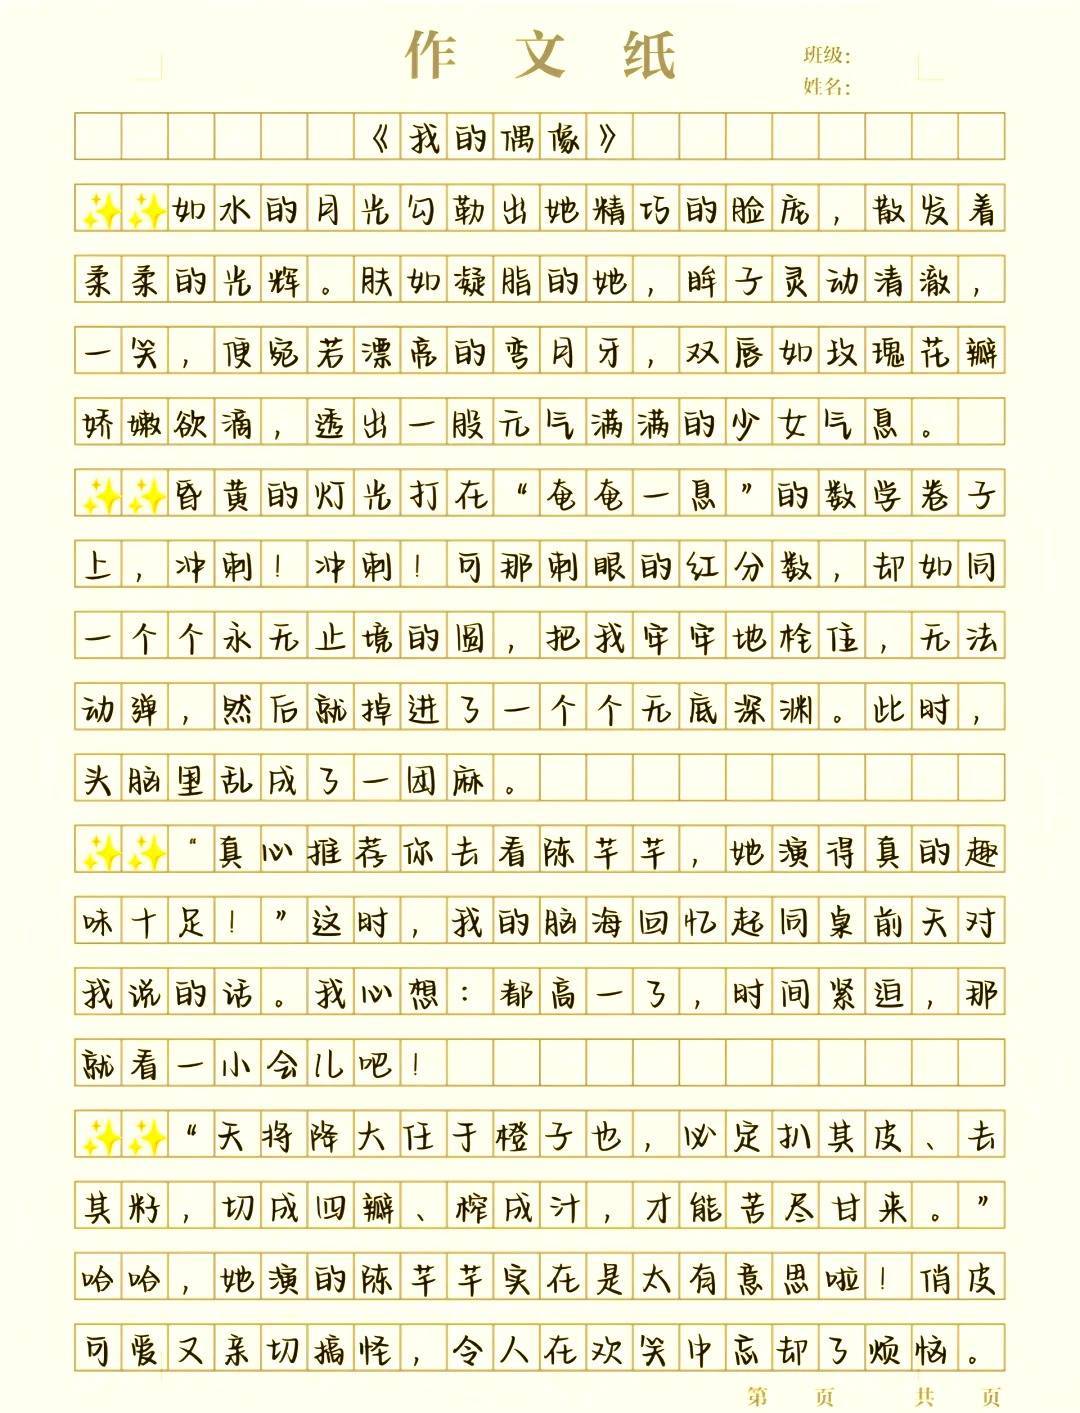 作文纸
班级：
姓名：
《我的偶像》
如水的月光勾勒出她精巧的脸庞，散发着
柔柔的光辉。肤如凝脂的她，眸子灵动清澈，
一笑，便宛若漂亮的弯月牙，双唇如玫瑰花瓣
娇嫩欲滴，透出一股元气满满的少女气息。
昏黄的灯光打在“奄奄一息”的数学卷子
上，冲刺！冲刺！可那刺眼的红分数，却如同
一个个永无止境的圆，把我牢牢地栓住，无法
动弹，然后就掉进了一个个无底深渊。此时，
头脑里乱成了一团麻。
“真心推荐你去看陈芊芊，她演得真的趣
味十足！”这时，我的脑海回忆起同桌前天对
我说的话。我心想：都高一了，时间紧迫，那
就看一小会儿吧！
“天将降大任于橙子也，必定扒其皮、去
其籽，切成四瓣、榨成汁，才能苦尽甘来。”
哈哈，她演的陈芊芊实在是太有意思啦！俏皮
可爱又亲切搞怪，令人在欢笑中忘却了烦恼。
第 页 共 页